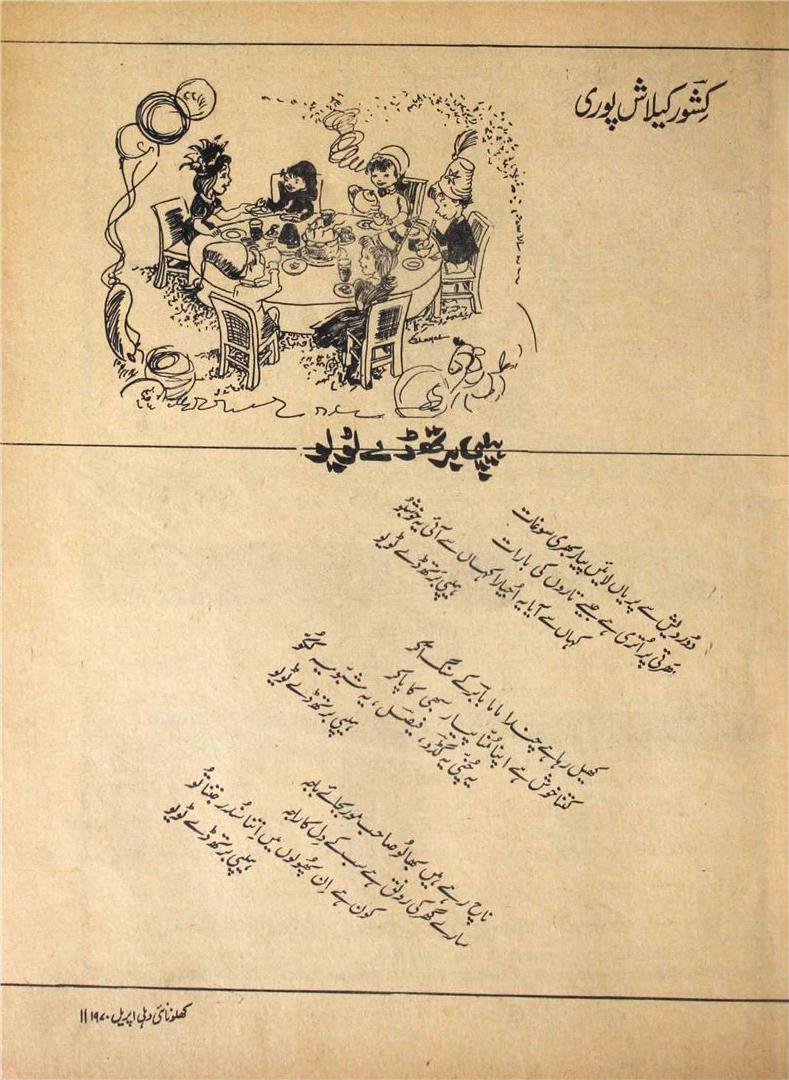 کشور کیلاش پوری
ہیپی برتھ ڈے ٹو یو
دُور دیش سے پریاں لائیں پیار بھری سوغات
دھرتی پر اُتری ہے جیسے تاروں کی بارات
کہاں سے آیا یہ اُجیارا کہاں سے آئی یہ خوشبُو
ہیپی برتھ ڈے ٹو یو
کھیل رہا ہے چندا ماما بابر کے سنگ آکر
کتنا خوش ہے اپنا مُنّا پیار سبھی کا پاکر
یہ چُنّی یہ گُڈّو، فیصل، یہ شبّو یہ
ہیپی برتھ ڈے ٹو یو
ناچ رہے ہیں بھالُو صاحب مور بجائے باجہ
سارے گھر کی رونق ہے سب کے دِل کا راجہ
کون ہے اِن پھُولوں میں اِتنا سُندر جِتنا تُو
ہیپی برتھ ڈے ٹو یو
کھلونا نئی دہلی اپریل ۱۹۷۰ ||